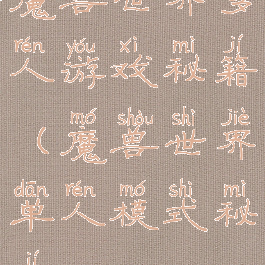 魔兽世界多
rén yóu xì mì jí
人游戏秘籍
mó shòu shì jiè
（魔兽世界
dān rén mó shì mì
单人模式秘
jí